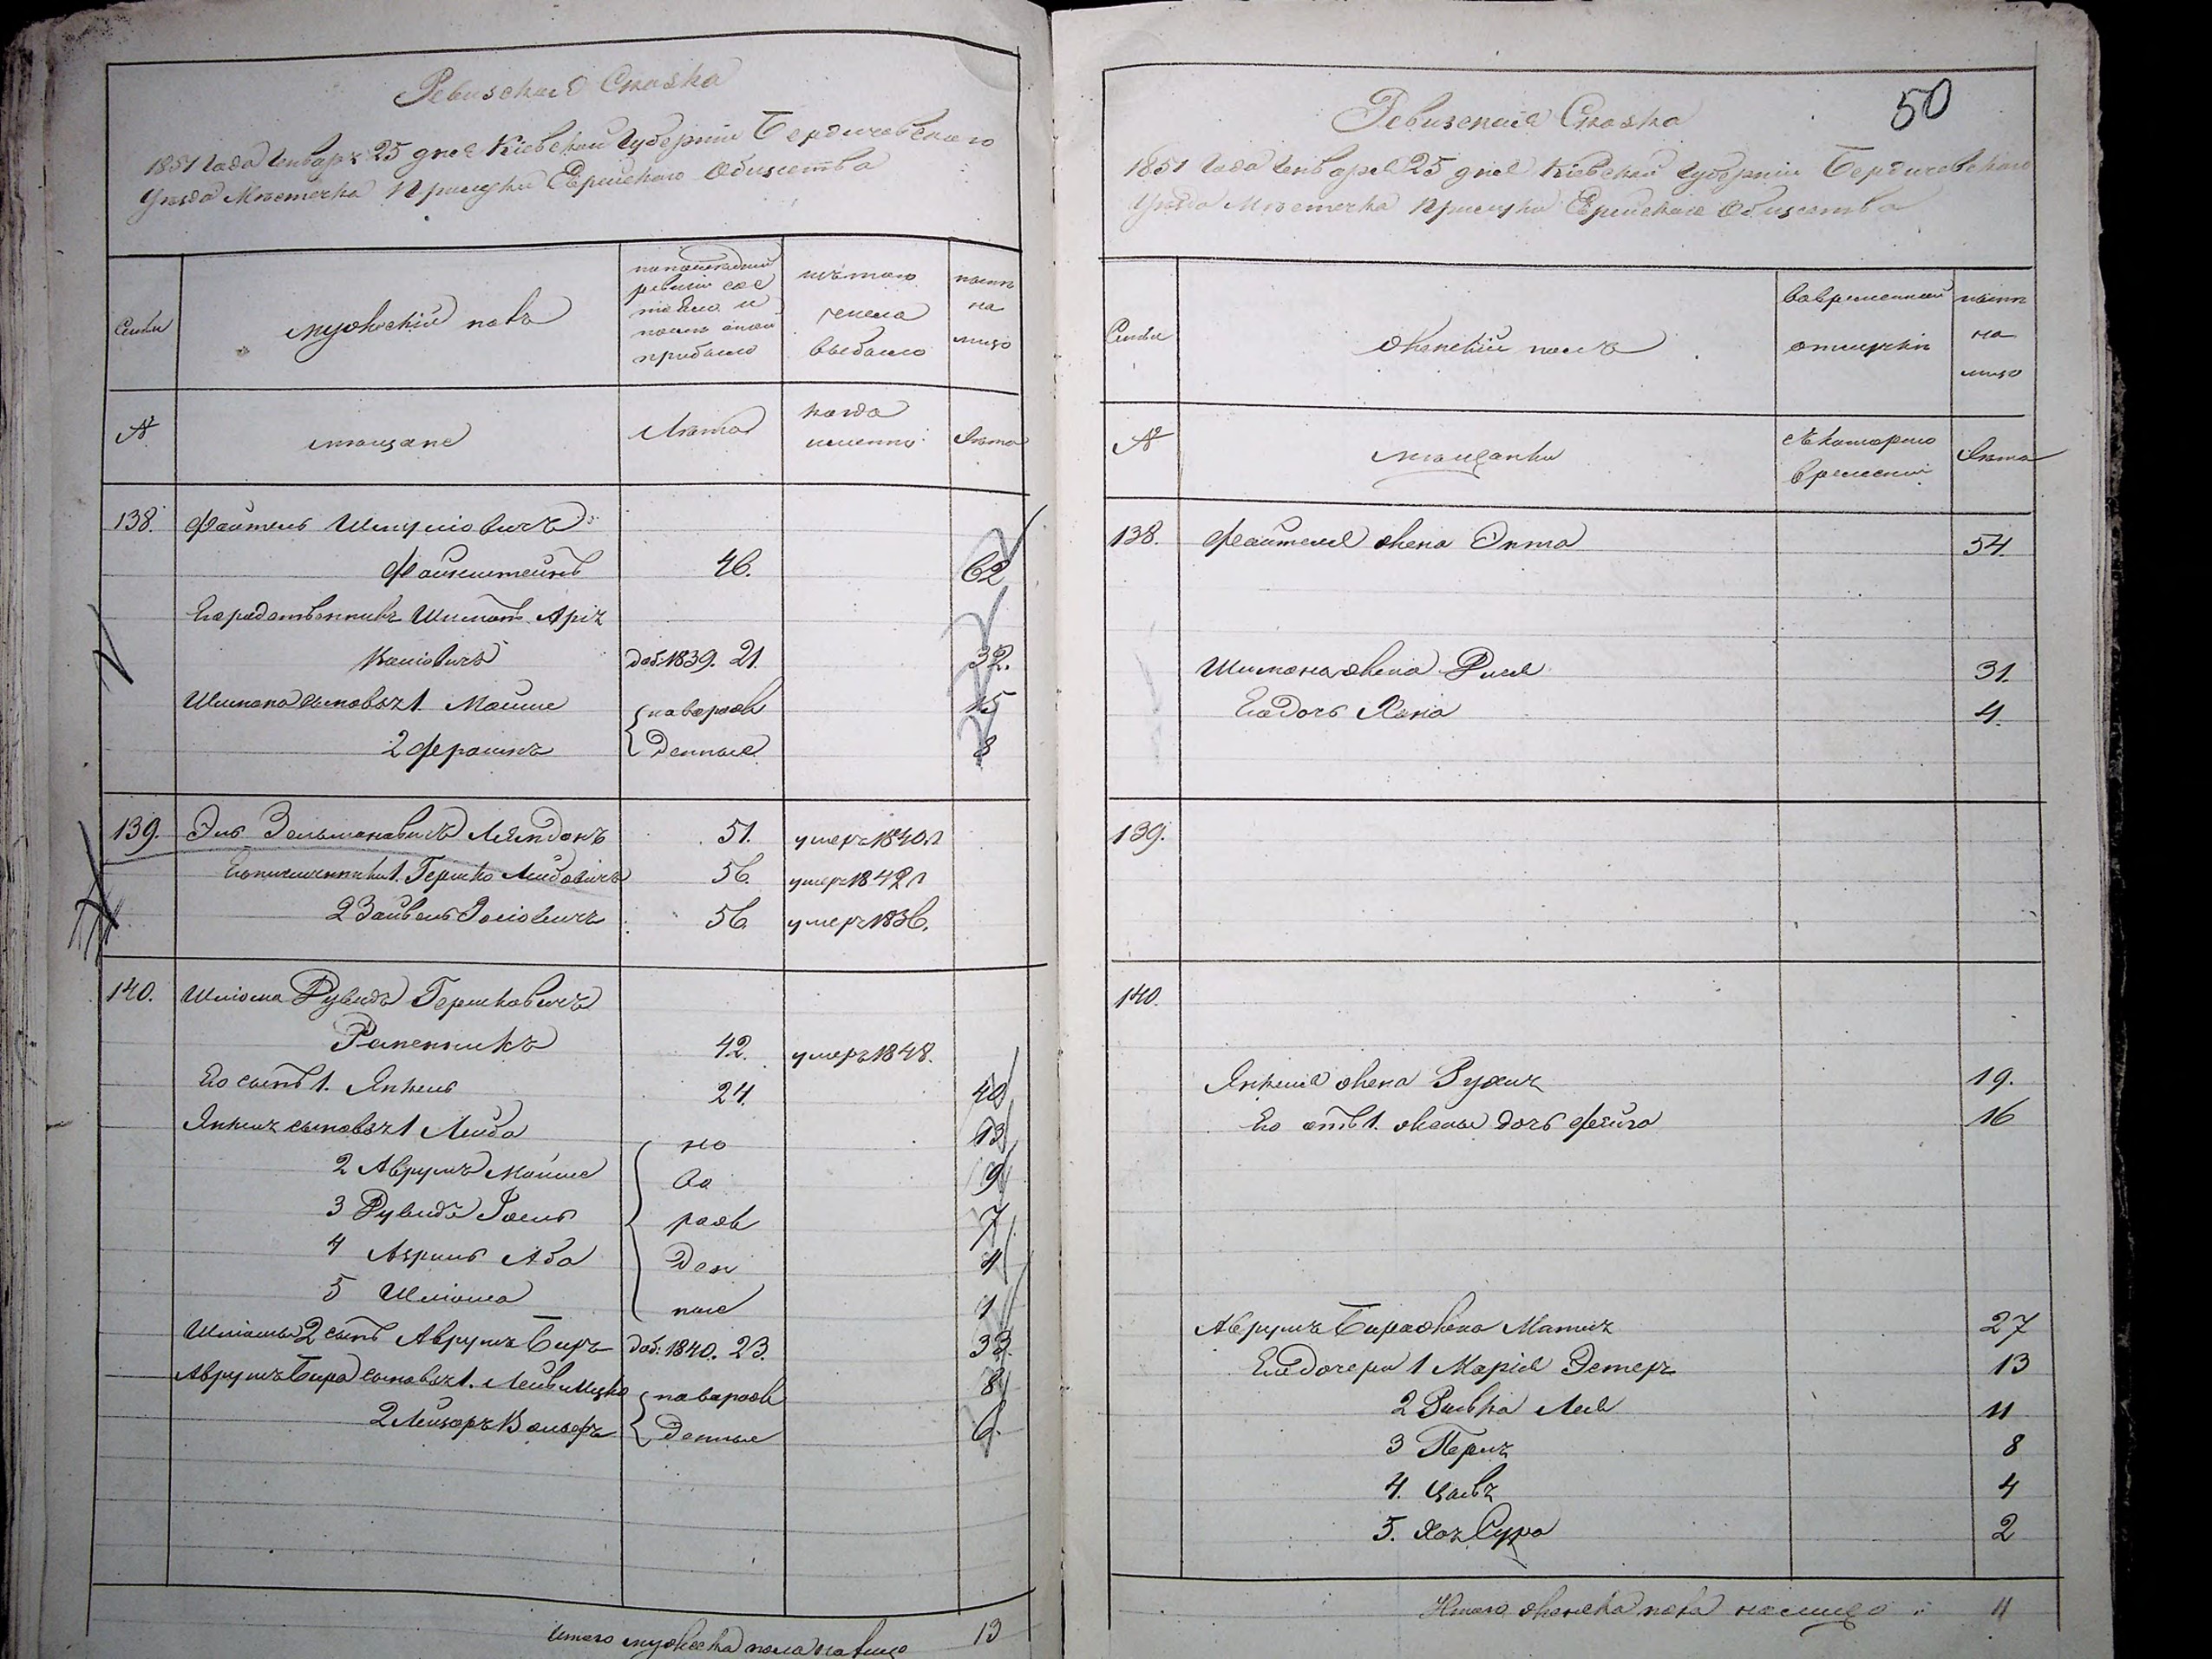 Ревизская Сказка
1851 года Генваря 25 дня Кіевской Губерніи Бердичевскаго
Уезда Местечка Прилуки Еврейскаго Общества
Семьи
мужескій полъ
по последней
ревизіи сос
тояло и
после оной
прибыло
изъ того
числа
выбыло
ныне
на
лицо
№
мещане
Лета
когда
именно
Лета
138. Файтель Шмулiовичъ
Файнштейнъ 46. 62
Его родственникъ Шимонъ Аріи
доб: 1839. 21. 32.
Шимона сыновья 1. Мойше новорож 15
2 денные 8
139. Эль Зельмановичъ 51. умеръ 1840 г
Его племянники 1. Гершко Лейбовичъ 56. умеръ 1842 г
2 Зайвель 56. умеръ 1836.
140. Шліома Рувинъ Гершковичъ
42. умеръ 1848.
Его сынъ 1. Янкель 24. 40
Янкеля сыновья 1 Лейба но 13
2 Аврумъ Мойше во 9
3 Рувинъ Іосиъ рож 7
4 Аба ден 4
5 Шліома ные 1
Шліомы 2 сынъ Аврумъ Беръ доб: 1840. 23. 33.
Аврумъ Бера сыновья 1. Лейб Ицко новорож 8
2 Лейзоръ Вольфъ денные 6.
Итого мужеска пола на лицо 13
50
Ревизская Сказка
1851 года Генваря 25 дня Кіевской Губерніи Бердичевскаго
Уезда Местечка Прилуки Еврейскаго Общества
Семьи
женскій полъ
во временной
отлучке
ныне
на
лицо
№
мещанки
съ котораго
времени
Лета
138. Файтеля жена 54.
Шимона жена Рися 31.
Его дочь Хана 4.
139.
140.
Янкеля жена Рухля 19.
Его отъ 1. жены дочь Фейга 16
Аврумъ Бера жена Матля 27
Его дочери 1 Марія Эстеръ 13
2 Ривка Лея 11
3 Перля 8
4. 4
5. Хая Сура 2
Итого женска пола на лицо 11